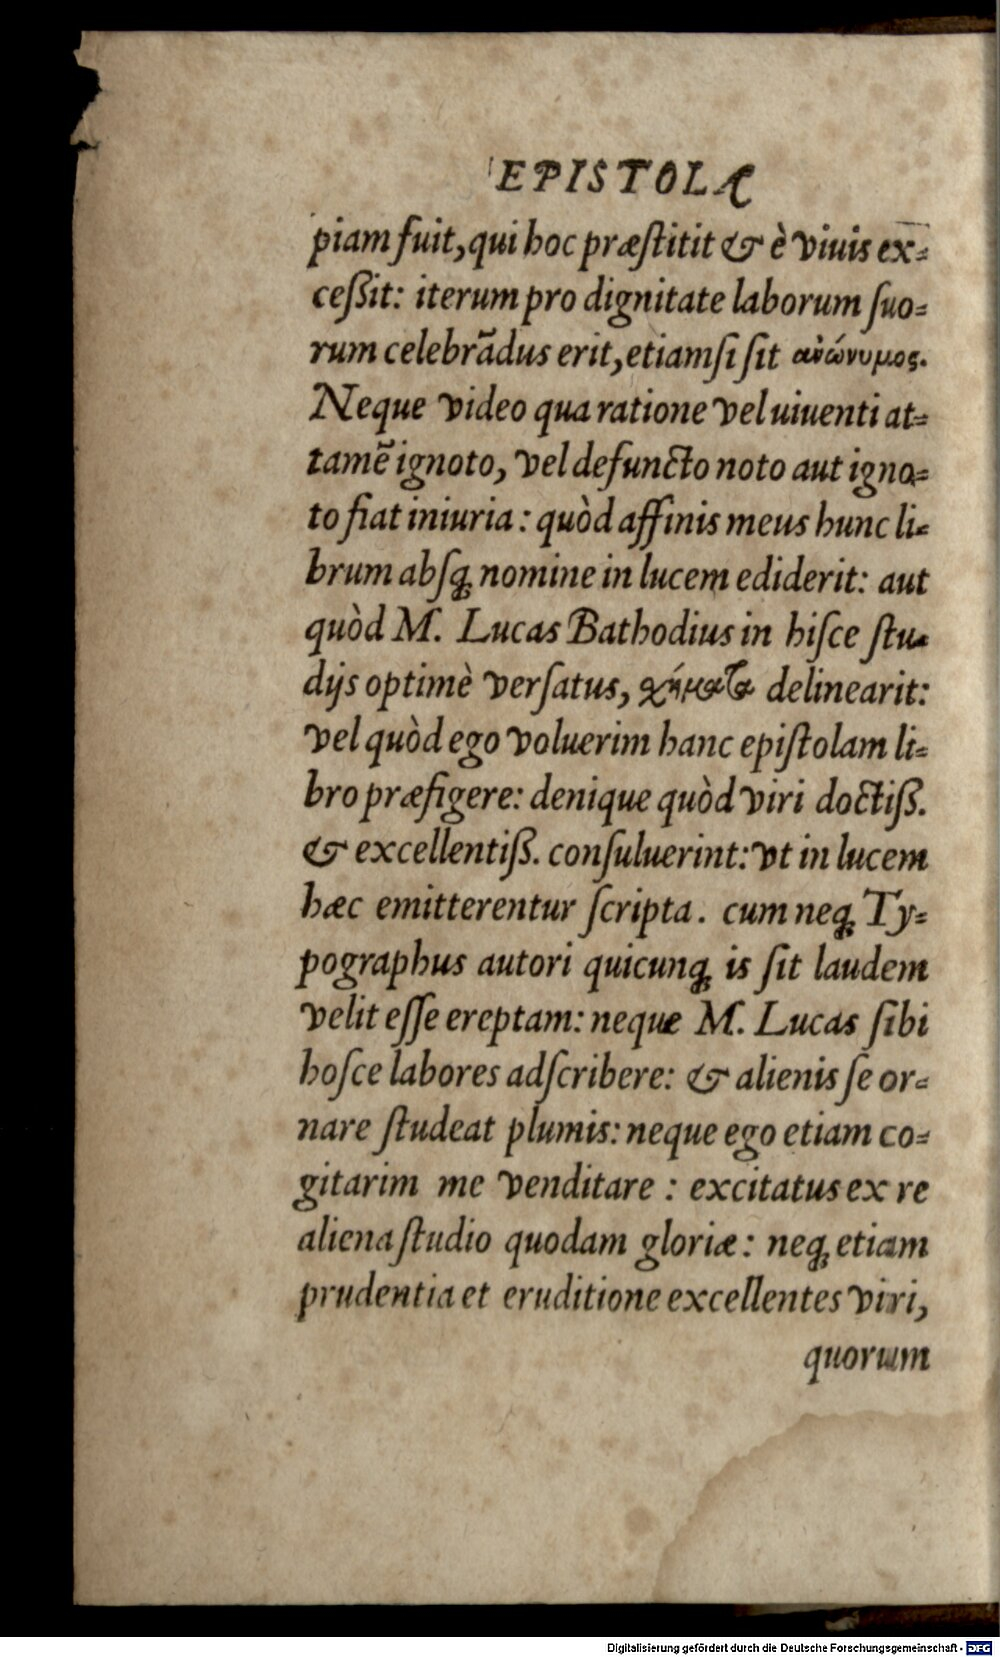 EPISTOLÆ
piam fuit, qui hoc præſtitit & è viuis ex-
ceßit: iterum pro dignitate laborum ſuo-
rum celebrādus erit, etiamſi ſit ανώνυμος.
Neque video qua ratione vel uiuenti at-
tamē ignoto, vel defuncto noto aut igno-
to fiat iniuria: quòd affinis meus hunc li-
brum abſq́; nomine in lucem ediderit: aut
quòd M. Lucas Bathodius in hiſce ſtu-
dijs optimè verſatus, χήματα delinearit:
vel quòd ego voluerim hanc epiſtolam li-
bro præfigere: denique quòd viri doctiß.
& excellentiß. conſuluerint: vt in lucem
hæc emitterentur ſcripta. cum neq; Ty-
pographus autori quicunq; is ſit laudem
velit eſſe ereptam: neque M. Lucas ſibi
hoſce labores adſcribere: & alienis ſe or-
nare ſtudeat plumis: neque ego etiam co-
gitarim me venditare : excitatus ex re
aliena ſtudio quodam gloriæ: neq; etiam
prudentia et eruditione excellentes viri,
quorum
Digitalisierung gefördert durch die Deutsche Forschungsgemeinschaft - DFG